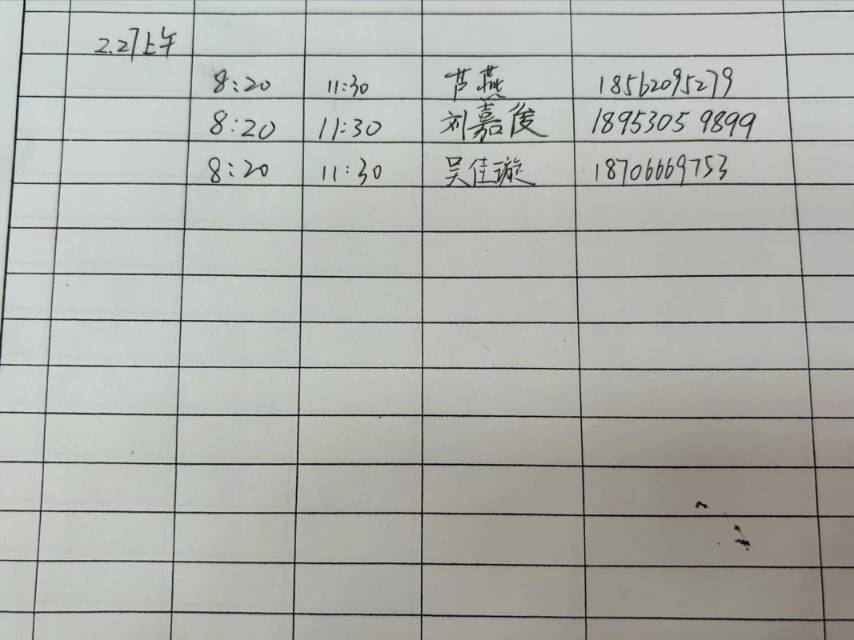 2.27上午
8:20 11:30 芦燕 18562095279
8:20 11:30 刘嘉俊 18953059899
8:20 11:30 吴佳璇 18706669753